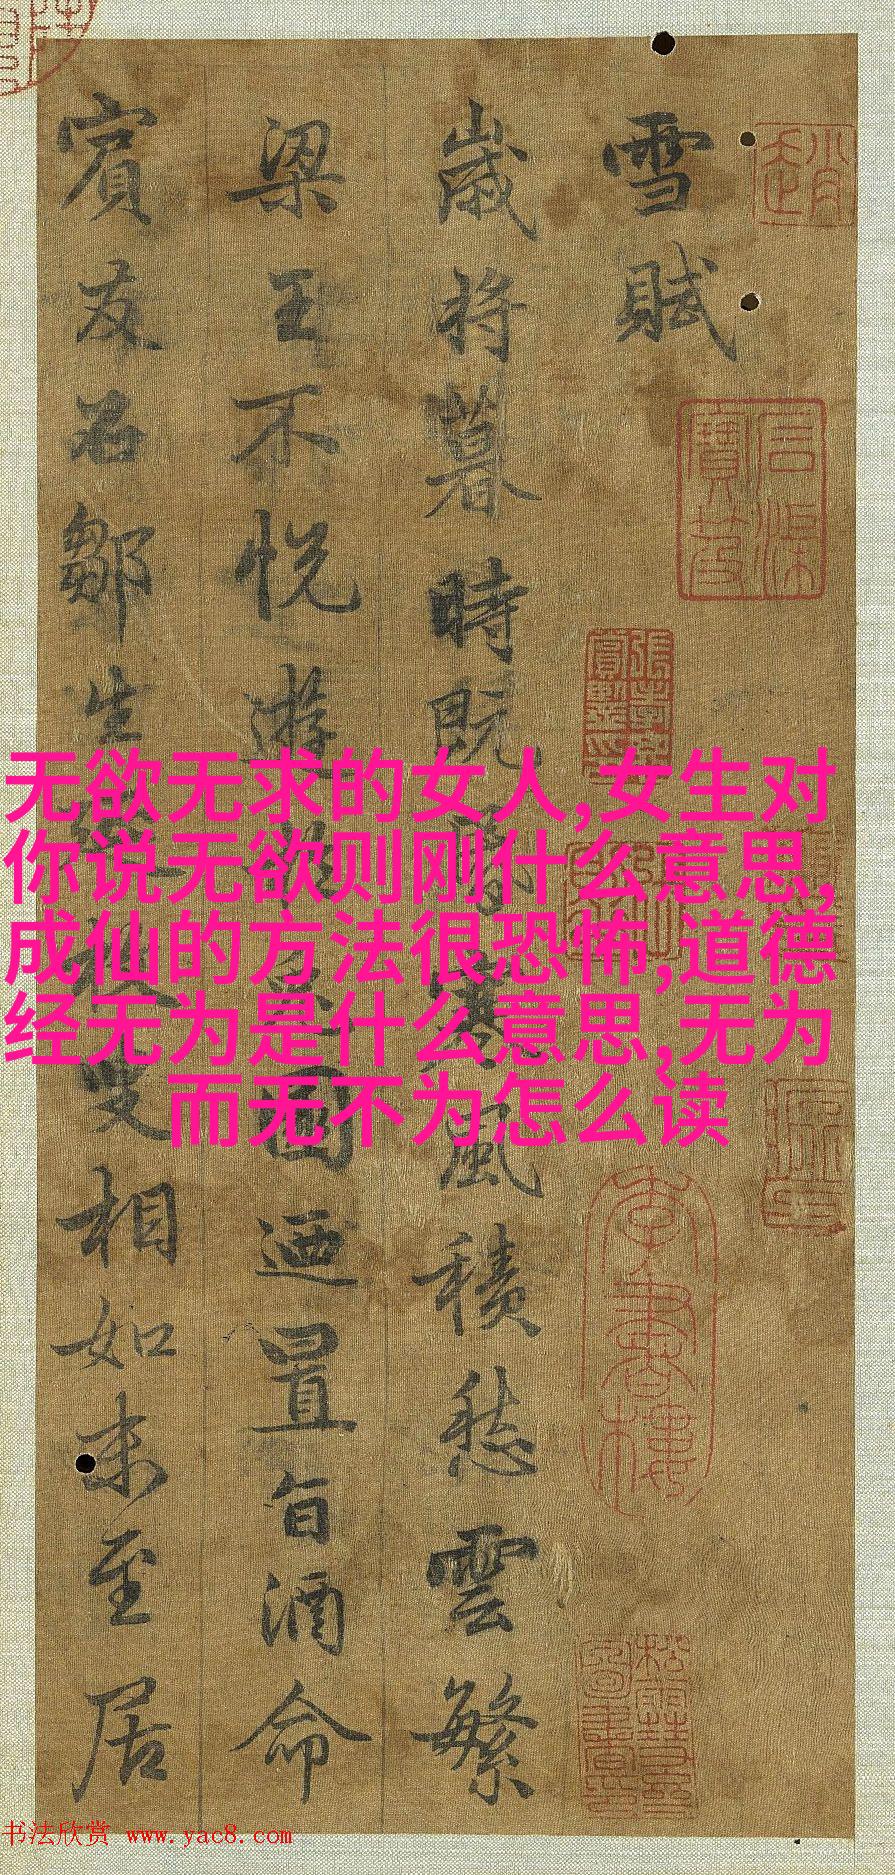 雪賦
歲将暮時既昏寒風積愁雲繁
梁王不悅遊於兔園迺置旨酒命
賓友召鄒生延枚叟相如末至居
无欲无求的女人,女生对
你说无欲则刚什么意思,
成仙的方法很恐怖,道德
经无为是什么意思,无为
而无不为怎么读
书法欣赏 www.yac8.com